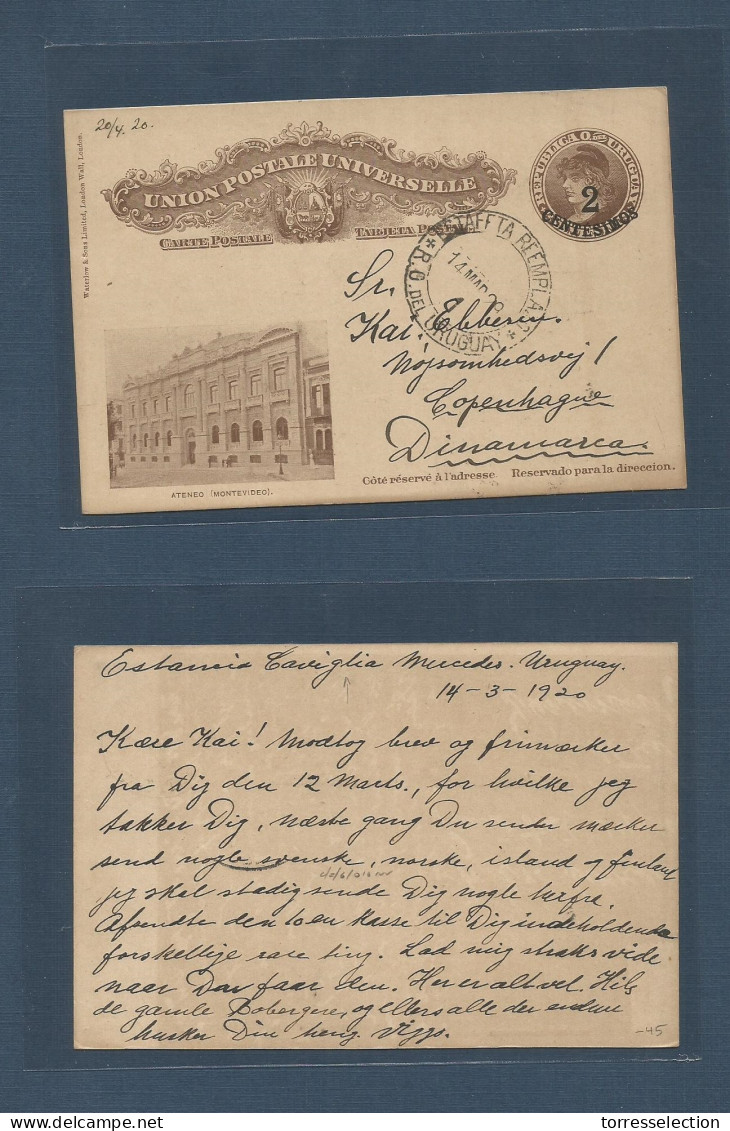 20/4. 20.
Waterlow & Sons Limited, London Wall, London.
UNION POSTALE UNIVERSELLE
CARTE POSTALE TARJETA POSTAL
REPUBLICA O. DEL URUGUAY
2
CENTESIMOS
ESTAFETA REEMPLA
14 MAR
R.O. DEL URUGUAY
Sr.
Kai. Ebbesen.
Nöjsomhedsvej 1
Copenhague
Dinamarca.
Côté réservé à l'adresse. Reservado para la direccion.
ATENEO (MONTEVIDEO).
Estancia Caviglia Mercedes. Uruguay.
14-3-1920
Kære Kai! Modtog brev og frimærker
fra Dig den 12 Marts., for hvilke jeg
takker Dig, næste gang Du sender mærker
send nogle svenske, norske, island og finland
jeg skal stadig sende Dig nogle herfra.
Afsendte den 10 en kasse til Dig indeholdende
forskellige rare ting. Lad mig straks vide
naar Du faar den. Her er alt vel. Hils
de gamle Bobergere, og ellers alle der endnu
husker Din heng. Viggo.
-45
torresselection